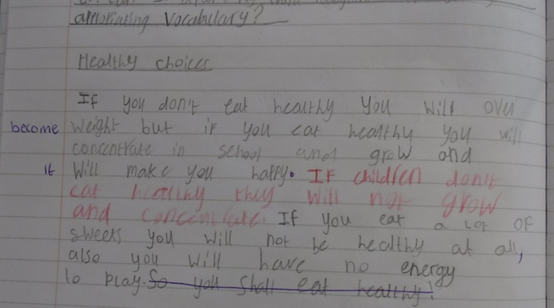 amorating Vocabulary?
Healthy choices
If you don't eat healthy you will over
become weight but if you eat healthy you will
concentrate in school and grow and
it Will make you happy. If children don't
eat healthy they will not grow
and concentrate. If you eat a lot of
sweets you will not be healthy at all,
also you will have no energy
to play. So you shall eat healthy!